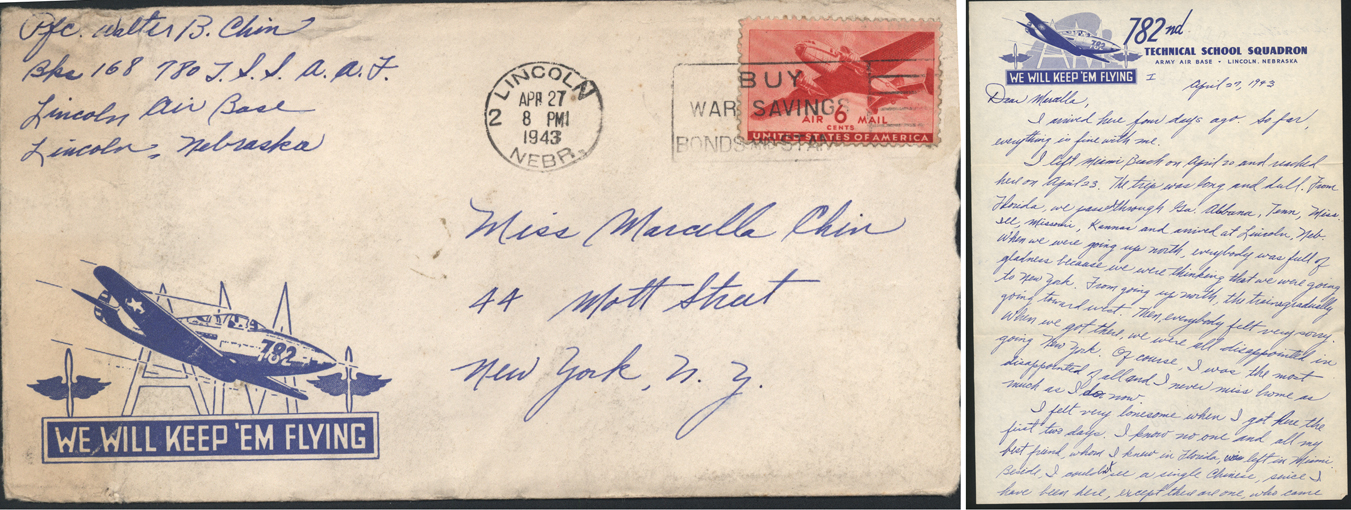 Pfc. Walter B. Chin
Bks 168 780 T. S. S. A. A. F.
Lincoln Air Base
Lincoln, Nebraska
LINCOLN
2
APR 27
8 PM
1943
NEBR.
BUY
WAR SAVINGS
BONDS AND STAM
AIR 6 MAIL
CENTS
UNITED STATES OF AMERICA
Miss Marcella Chin
44 Mott Street
New York, N. Y.
782
WE WILL KEEP 'EM FLYING
782nd
TECHNICAL SCHOOL SQUADRON
ARMY AIR BASE • LINCOLN, NEBRASKA
782
WE WILL KEEP 'EM FLYING
I
April 27, 1943
Dear Marcella,
I arrived here four days ago. So far,
everything is fine with me.
I left Miami Beach on April 20 and reached
here on April 23. The trip was long and dull. From
Florida, we passed through Ga. Abbana, Tenn, Miss.
see, Missouri, Kansas and arrived at Lincoln, Neb.
When we were going up north, everybody was full of
gladness because we were thinking that we were going
to New York. From going up north, the train gradually
going toward west. Then, everybody felt very sorry.
When we got there, we were all disappointed in
going New York. Of course, I was the most
disappointed of all and I never miss home as
much as I do now.
I felt very lonesome when I got here the
first two days. I know no one and all my
best friend, whom I knew in Florida, was left in Miami
Beach. I couldn't see a single Chinese, since I
have been here, except there are one, who came